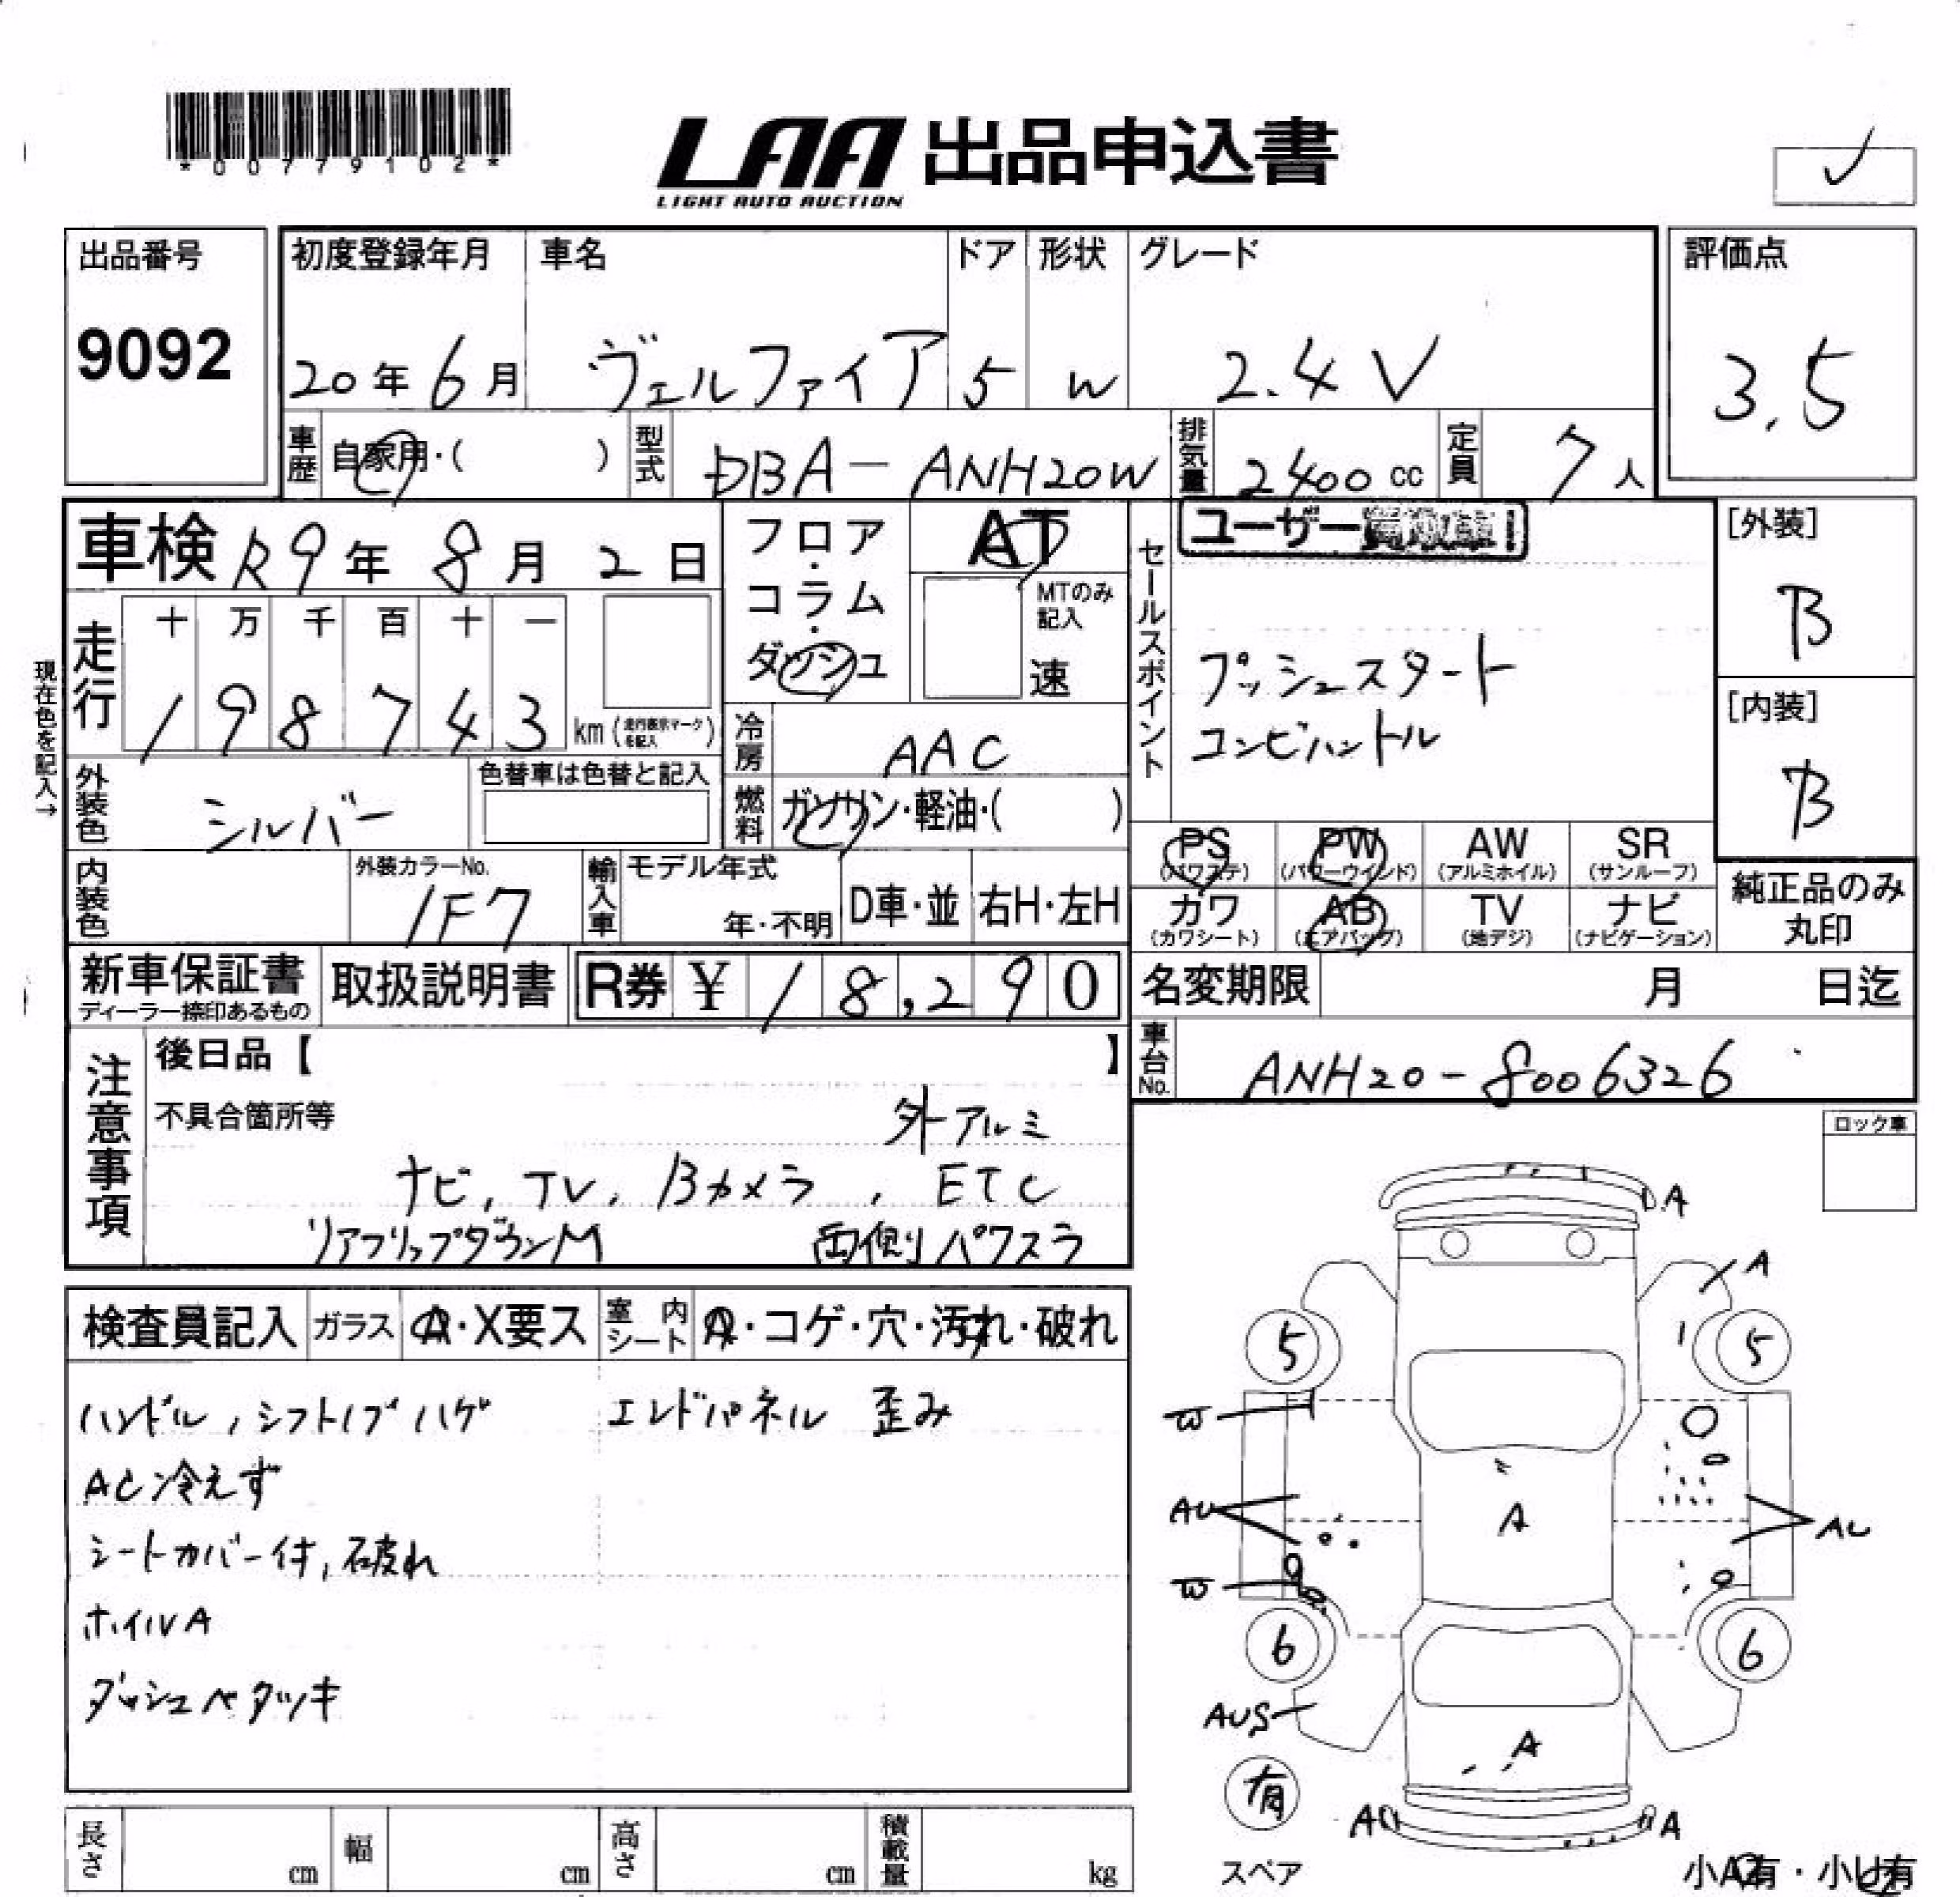 *00779102*
LAA 出品申込書
LIGHT AUTO AUCTION
出品番号
9092
初度登録年月
20年6月
車名
ヴェルファイア
ドア
5
形状
W
グレード
2.4 V
評価点
3.5
車歴 自家用・( )
型式 DBA-ANH20W
排気量 2400 cc
定員 7人
車検 R9年 8月 2日
フロア・コラム・ダッシュ
AT
MTのみ記入
速
セールスポイント
ユーザー
プッシュスタート
コンビハンドル
[外装]
B
[内装]
B
現在色を記入→
走行
十 万 千 百 十 一
1 9 8 7 4 3 km (走行表示マークを記入)
冷房 AAC
燃料 ガソリン・軽油・( )
外装色 シルバー
色替車は色替と記入
内装色
外装カラーNo.
1F7
輸入車
モデル年式
年・不明
D車・並
右H・左H
PS (パワステ)
PW (パワーウインド)
AW (アルミホイル)
SR (サンルーフ)
カワ (カワシート)
AB (エアバッグ)
TV (地デジ)
ナビ (ナビゲーション)
純正品のみ丸印
新車保証書
ディーラー捺印あるもの
取扱説明書
R券 ¥ 18,290
名変期限 月 日迄
車台No. ANH20-8006326
注意事項
後日品【 】
不具合箇所等
外アルミ
ナビ, TV, Bカメラ, ETC
リアフリップダウンM 両側パワスラ
ロック車
検査員記入
ガラス A・X要ス
室内シート A・コゲ・穴・汚れ・破れ
ハンドル,シフトノブハゲ
エンドパネル 歪み
AC冷えず
シートカバー付,破れ
ホイルA
ダッシュベタツキ
A
A
5
5
W
AU
A
AU
W
6
6
AUS
A
有
A
A
スペア
小A有・小U有
長さ cm
幅 cm
高さ cm
積載量 kg